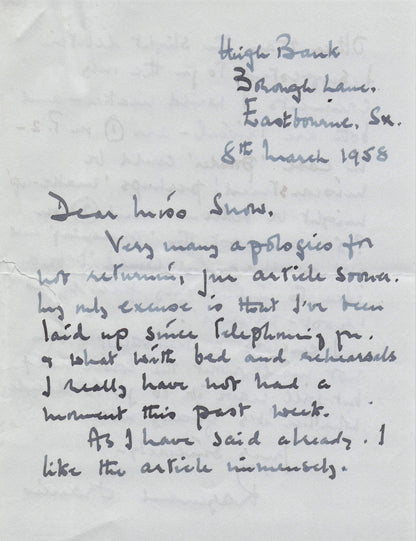 High Bank
Borough Lane.
Eastbourne, Sx.
8th March 1958
Dear Miss Snow.
Very many apologies for
not returning your article sooner.
My only excuse is that I've been
laid up since telephoning you.
& what with bed and rehearsals
I really have not had a
moment this past week.
As I have said already. I
like the article immensely.